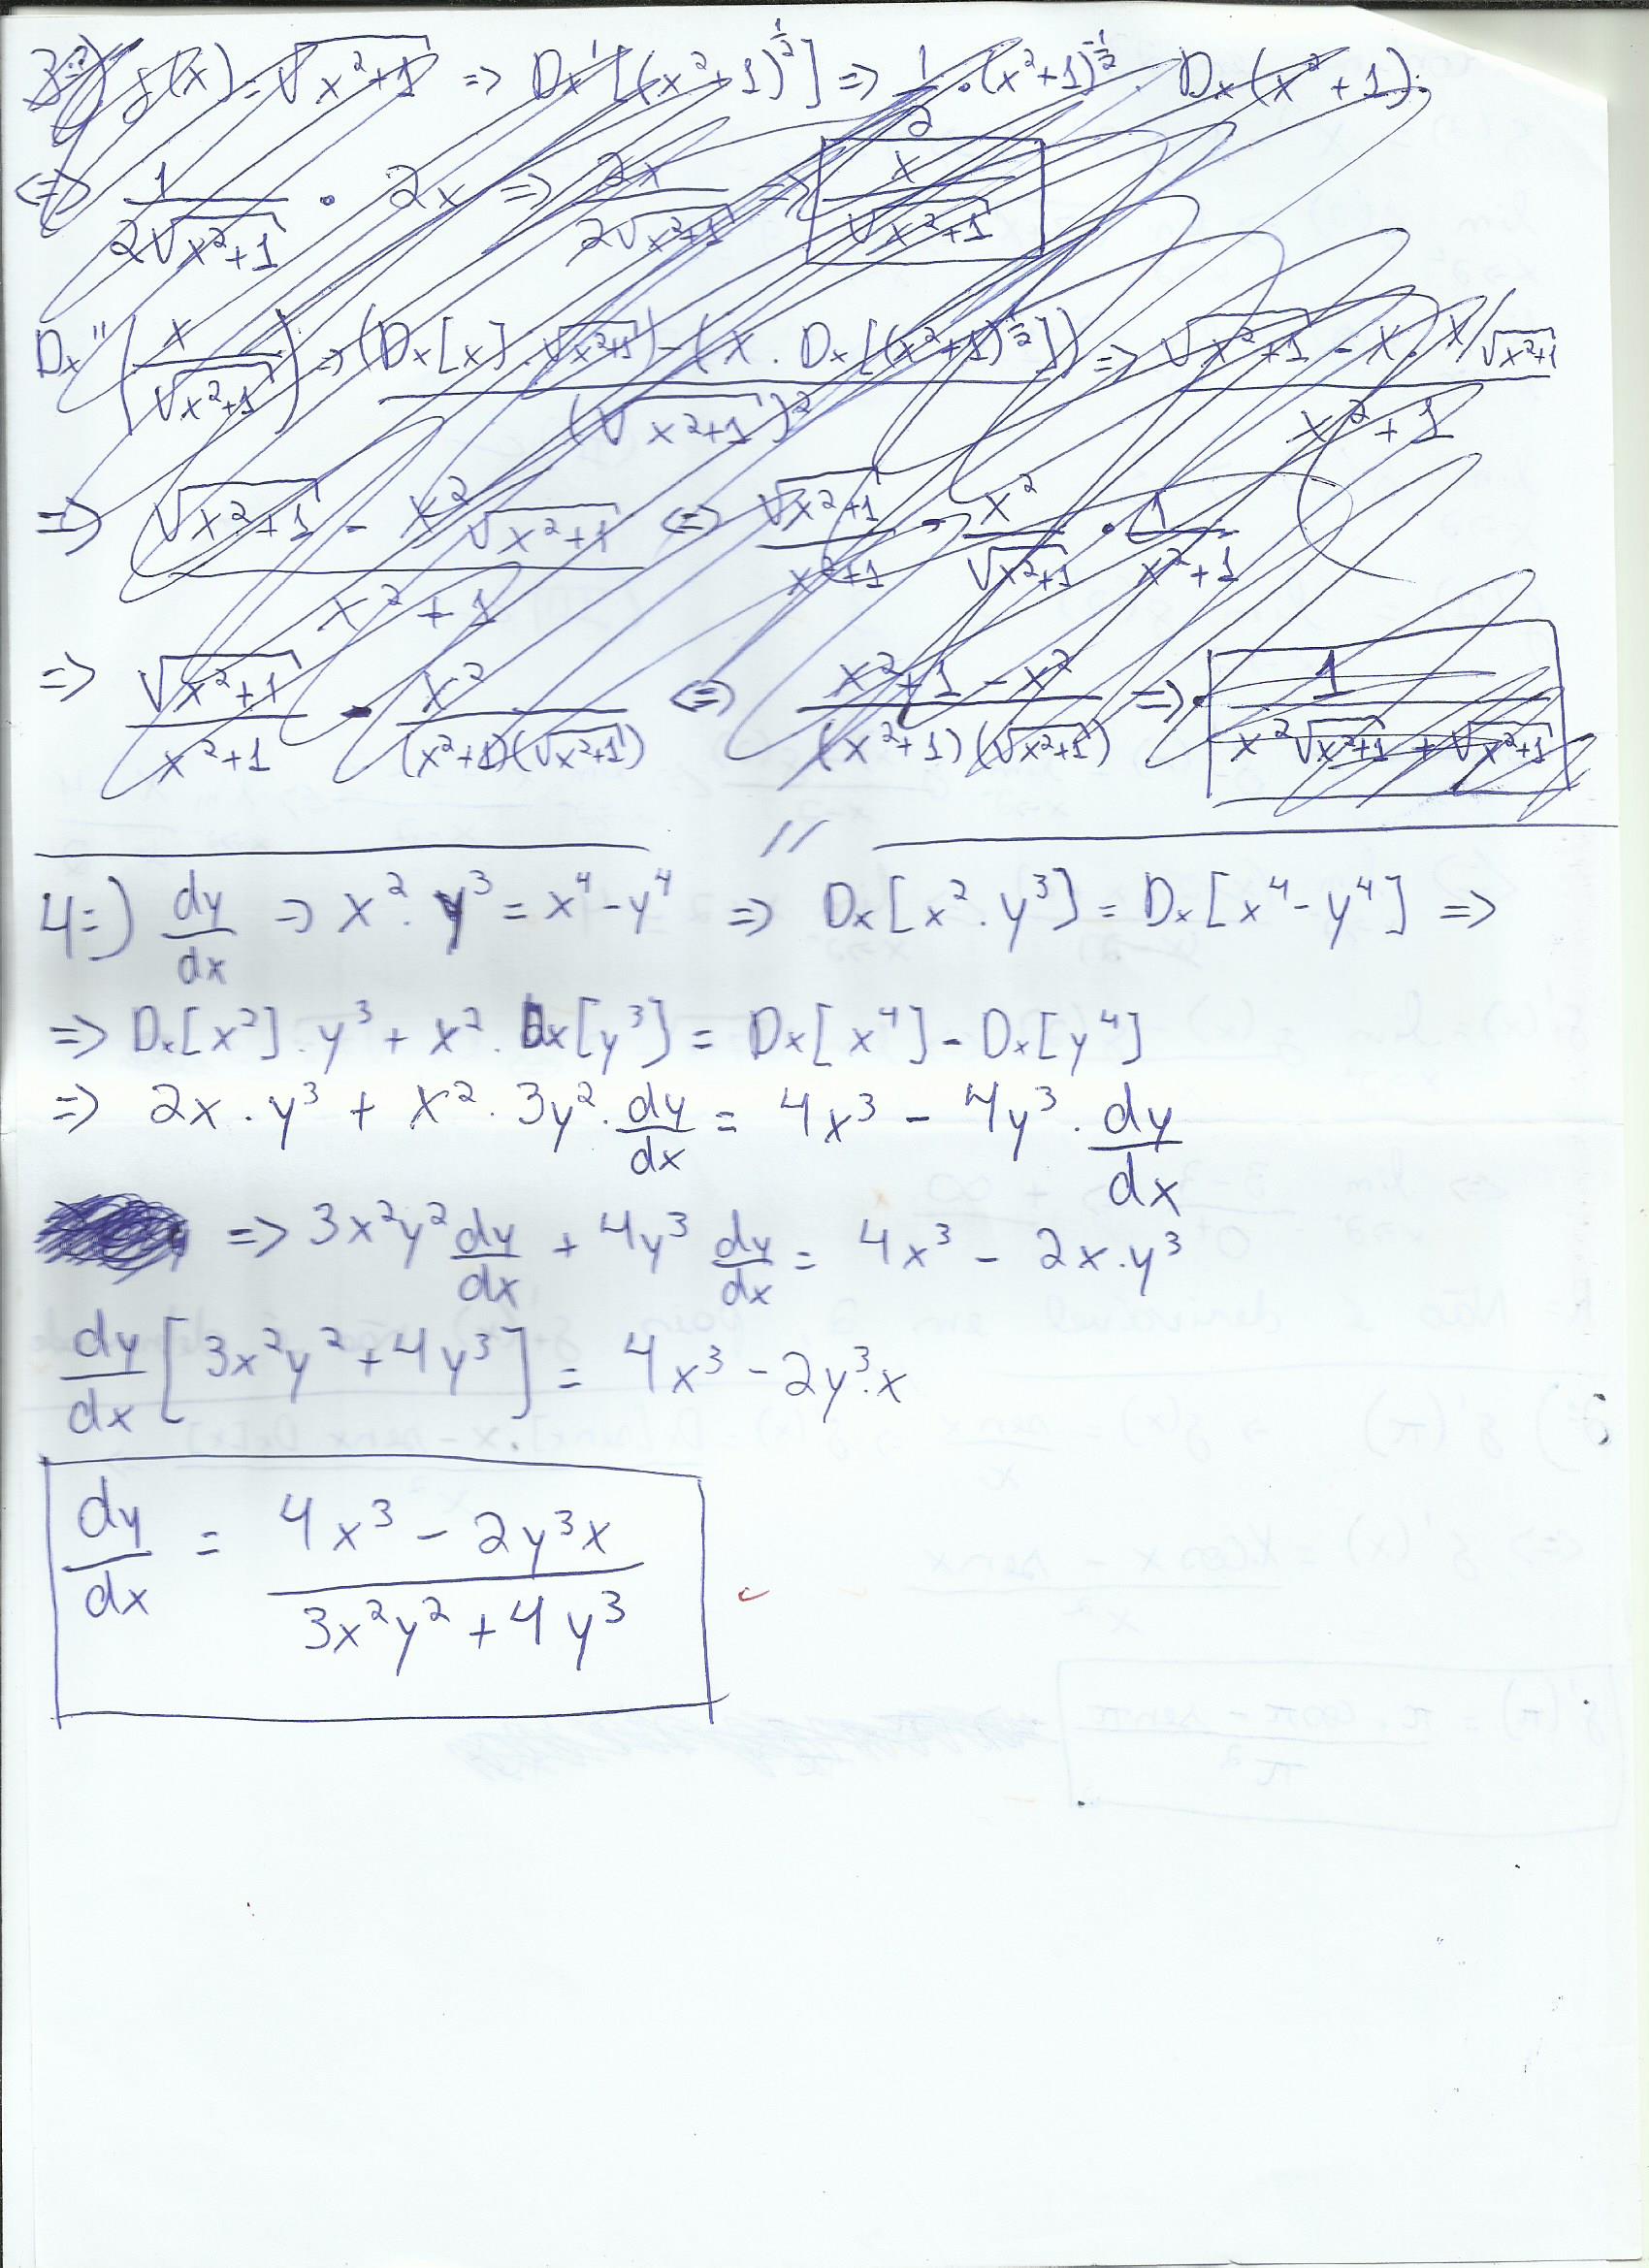 3ª) f(x) = √(x²+1) => Dx' [(x²+1)^(1/2)] => 1/2 · (x²+1)^(-1/2) · Dx(x²+1).
<=> 1/(2√(x²+1)) · 2x => 2x/(2√(x²+1)) => x/√(x²+1)
Dx'' (x/√(x²+1)) => ((Dx[x] · √(x²+1)) - (x . Dx[(x²+1)^(1/2)]))/(√(x²+1))² => (√(x²+1) - x . x/√(x²+1))/(x²+1)
=> (√(x²+1) - x²/√(x²+1))/(x²+1) <=> √(x²+1)/(x²+1) - x²/√(x²+1) · 1/(x²+1)
=> √(x²+1)/(x²+1) - x²/((x²+1)(√(x²+1))) <=> (x²+1-x²)/((x²+1)(√(x²+1))) => 1/(x²√(x²+1) + √(x²+1))
//
4=) dy/dx => x² . y³ = x⁴ - y⁴ => Dx[x² . y³] = Dx[x⁴ - y⁴] =>
=> Dx[x²] . y³ + x² . Dx[y³] = Dx[x⁴] - Dx[y⁴]
=> 2x . y³ + x² . 3y² . dy/dx = 4x³ - 4y³ . dy/dx
=> 3x²y² dy/dx + 4y³ dy/dx = 4x³ - 2x.y³
dy/dx [3x²y² + 4y³] = 4x³ - 2y³.x
dy/dx = (4x³ - 2y³x)/(3x²y² + 4y³)